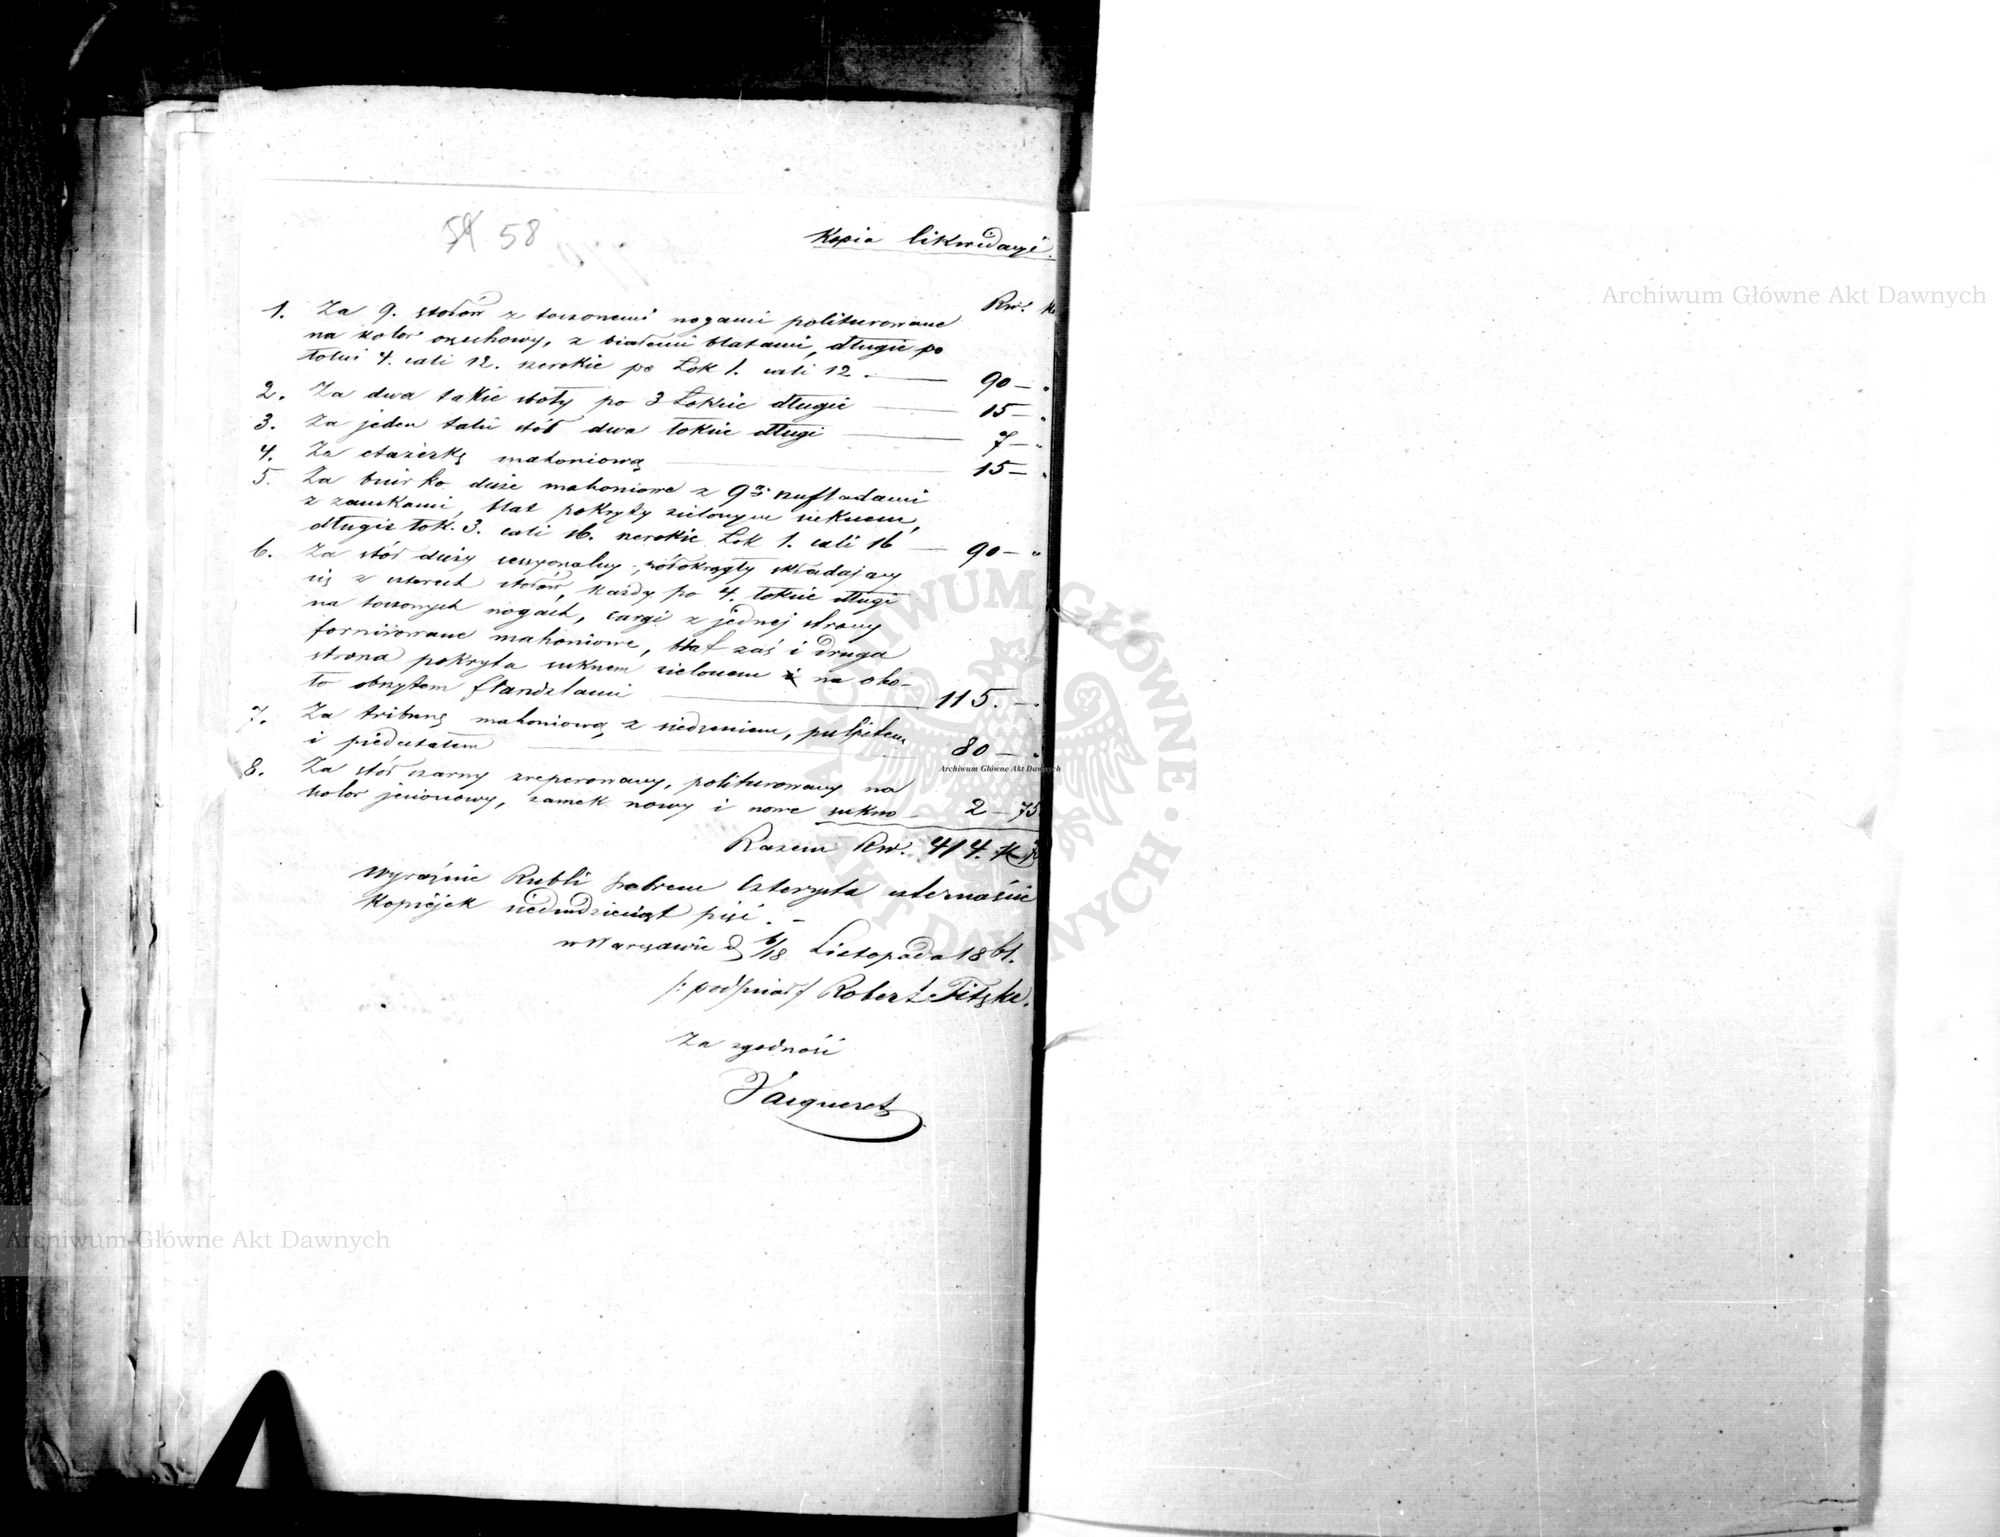 58
Kopia likwidacyi.
Rs. k.
1. Za 9. stołów z toczonemi nogami politurowane
na kolor orzechowy, z białemi blatami, długie po
łokci 4. cali 12. szerokie po Łok 1. cali 12. — 90 — "
2. Za dwa takie stoły po 3 Łokcie długie — 15 — "
3. Za jeden taki stół dwa łokcie długi — 7 — "
4. Za etażerkę mahoniową — 15 — "
5. Za biurko duże mahoniowe z 9 szufladami
z zamkami, blat pokryty zielonym suknem,
długie łok. 3. cali 16. szerokie Łok 1. cali 16 — 90 — "
6. Za stół duży sessyonalny, półokrągły składający
się z czterech stołów, każdy po 4. łokcie długi
na toczonych nogach, cargi z jednej strony
fornirowane mahoniowe, blat zaś i druga
strona pokryta suknem zielonem na oko-
ło obszytem frandzlami — 115. — "
7. Za trybunę mahoniową z siedzeniem, pulpitem
i piedestałem — 80 — "
8. Za stół czarny zreperowany, politurowany na
kolor jesionowy, zamek nowy i nowe sukno — 2 — 75
Razem Rs. 414. k 75
wyraźnie Rubli srebrem czterysta czternaście
Kopiejek siedmdziesiąt pięć. —
w Warszawie d 6/18 Listopada 1861.
/: podpisał / Robert Fitzke.
Za zgodność
Archiwum Główne Akt Dawnych
Archiwum Główne Akt Dawnych
Archiwum Główne Akt Dawnych
ARCHIWUM GŁÓWNE · AKT DAWNYCH ·